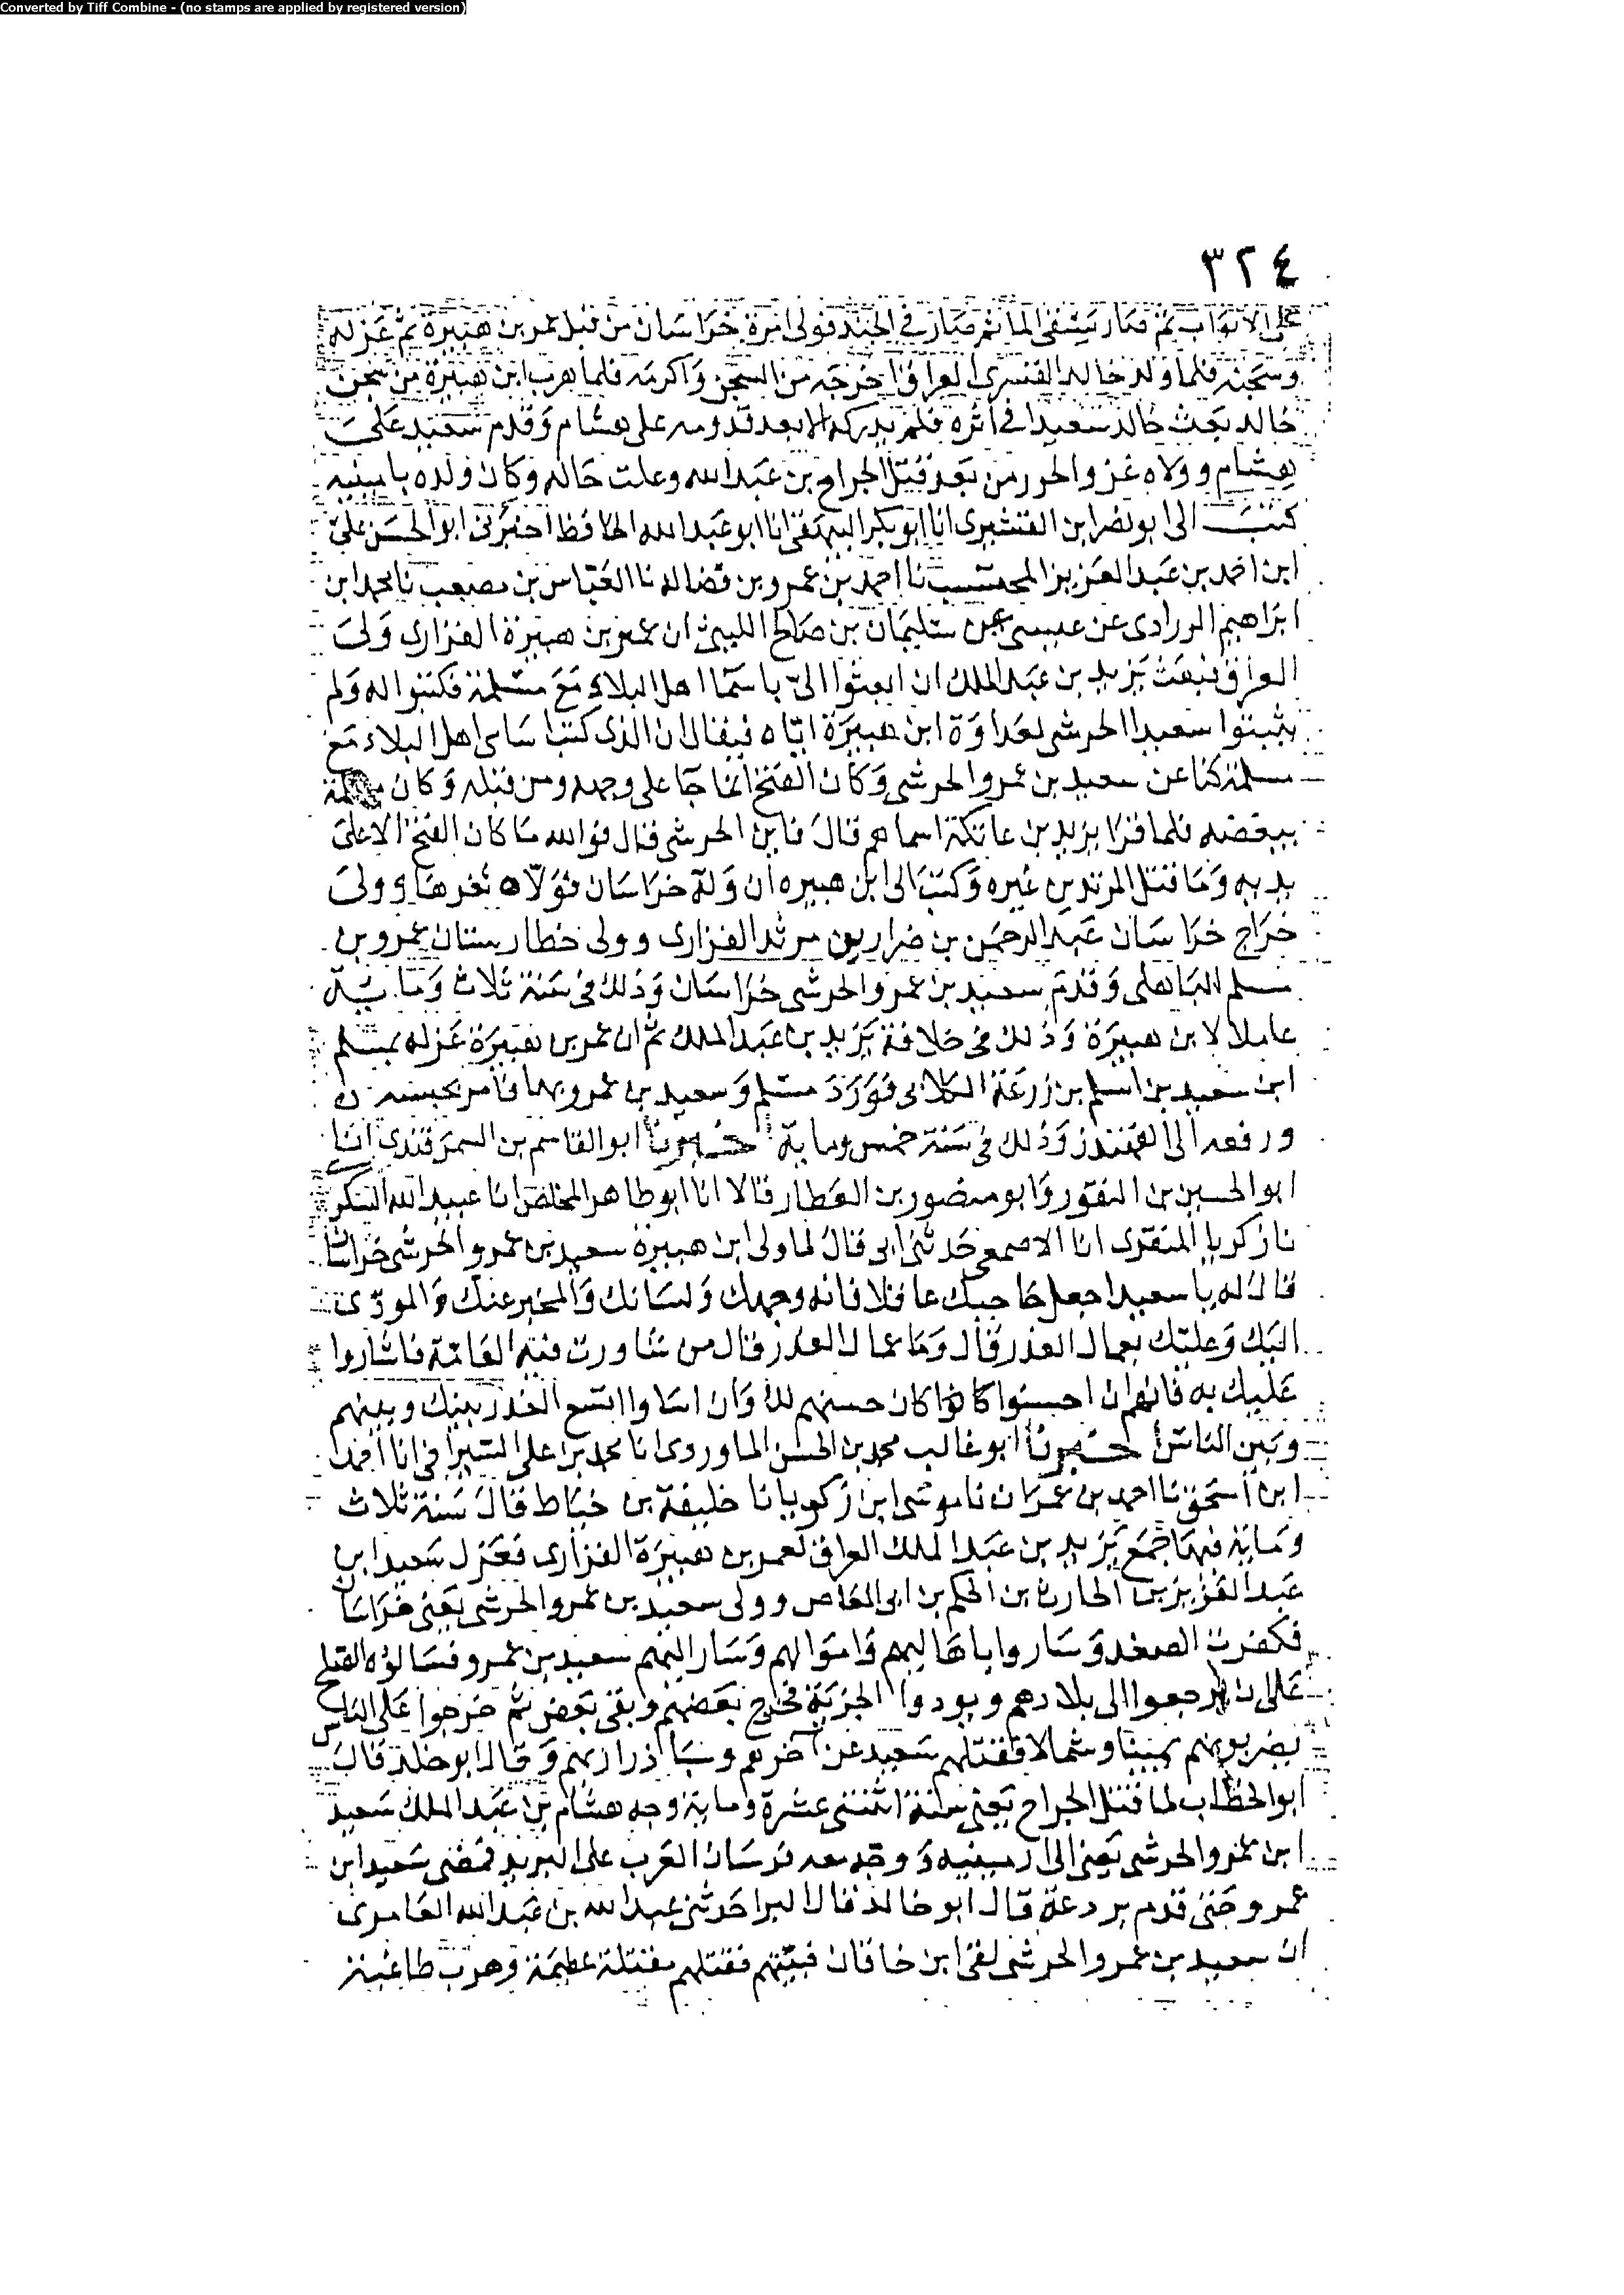 Converted by Tiff Combine - (no stamps are applied by registered version)
٣٢٤
على الابواب ثم صار يسقى الما ثم صار في الجند فولى امرة خراسان من قبل عمر بن هبيرة ثم عزله
وسجنه فلما ولد خالد القسرى العراق اخرجه من السجن واكرمه فلما هرب ابن هبيرة من سجن
خالد بعث خالد سعيدا في اثره فلم يدركه الا بعد قدومه على هشام وقدم سعيد على
هشام وولاه غزو الخزر من بعد قتل الجراح بن عبد الله وعلت حاله وكان ولده بارمينيه
كتب الى ابو نصر ابن القشيرى انا ابو بكر البيهقى انا ابو عبد الله الحافظ اخبرنى ابو الحسن على
ابن احمد بن عبد العزيز المحتسب نا احمد بن عمرو بن فضاله نا العباس بن مصعب نا محمد ابن
ابراهيم الورادى عن عيسى عن سليمان بن صالح الليثى ان عمر بن هبيرة الفزارى ولى
العراق فبعث يزيد بن عبد الملك ان ابعثوا الى باسما اهل البلاء مع مسلمة فكتبوا له ولم
يثبتوا سعيدا الحرشى لعداوة ابن هبيرة اياه فيقال ان الذى كتب اسامى اهل البلاء مع
مسلمة كنا عن سعيد بن عمرو الحرشى وكان الفتح انما جا على وجهه ومن قبله وكان مسلمة
يبغضه فلما قرا يزيد بن عاتكة اسماهم قال فاين الحرشى فقال فوالله ما كان الفتح الا على
يديه وما قتل المرتدين غيره وكتب الى ابن هبيره ان وله خراسان فولاه ثغرها وولى
خراج خراسان عبد الرحمن بن ضرار بن مرثد الفزارى وولى خطارستان عمرو بن
مسلم الباهلى وقدم سعيد بن عمرو الحرشى خراسان وذلك فى سنة ثلاث وماية
عاملا لابن هبيرة وذلك فى خلافة يزيد بن عبد الملك ثم ان عمر بن هبيرة عزله بمسلم
ابن سعيد بن اسلم بن زرعة الكلابى فورد مسلم وسعيد بن عمرو بها فامر بحبسه
ورفعه الى القهندز وذلك فى سنة خمس وماية اخبرنا ابو القاسم بن السمرقندى انا
ابو الحسين بن النقور وابو منصور بن العطار قالا انا ابو طاهر المخلص انا عبيد الله السكرى
نا زكريا المنقرى انا الاصمعى حدثنى ابى قال لما ولى ابن هبيرة سعيد بن عمرو الحرشى خراسان
قال له يا سعيد اجعل حاجبك عاقلا فانه وجهك ولسانك والمخبر عنك والمودى
اليك وعليك بعمال العذر قال وما عمال العذر قال من شاورت فيه العامة فاشاروا
عليك به فانهم ان احسنوا كانوا كان حسنهم لك وان اساوا اتسع العذر بينك وبينهم
وبين الناس اخبرنا ابو غالب محمد بن الحسن الماوردى انا محمد بن على السيرافى انا احمد
ابن اسحق نا احمد بن عمران نا موسى ابن زكريا نا خليفة بن خياط قال سنة ثلاث
وماية فيها جمع يزيد بن عبد الملك العراق لعمر بن هبيرة الفزارى فعزل سعيد ابن
عبد العزيز بن الحارث بن الحكم بن ابى العاص وولى سعيد بن عمرو الحرشى يعنى خراسان
فكفرت الصغد وساروا باهاليهم واموالهم وسار اليهم سعيد بن عمرو فسالوه الصلح
على ان يرجعوا الى بلادهم ويودوا الجزية فخرج بعضهم وبقى بعض ثم خرجوا على الناس
يضربونهم يمينا وشمالا فقتلهم سعيد عن اخرهم وسبا ذراريهم وقال ابو خلد قال
ابو الخطاب لما قتل الجراح يعنى سنة اثنتى عشرة وماية وجه هشام بن عبد الملك سعيد
ابن عمرو الحرشى يعنى الى ارمينيه ووجه معه فرسان العرب على البريد فمضى سعيد ابن
عمرو حتى قدم بردعة قال ابو خالد قال البرا حدثنى عبد الله بن عبد الله العامرى
ان سعيد بن عمرو الحرشى لقى ابن خاقان فبيتهم فقتلهم مقتلة عظيمة وهرب طاغية